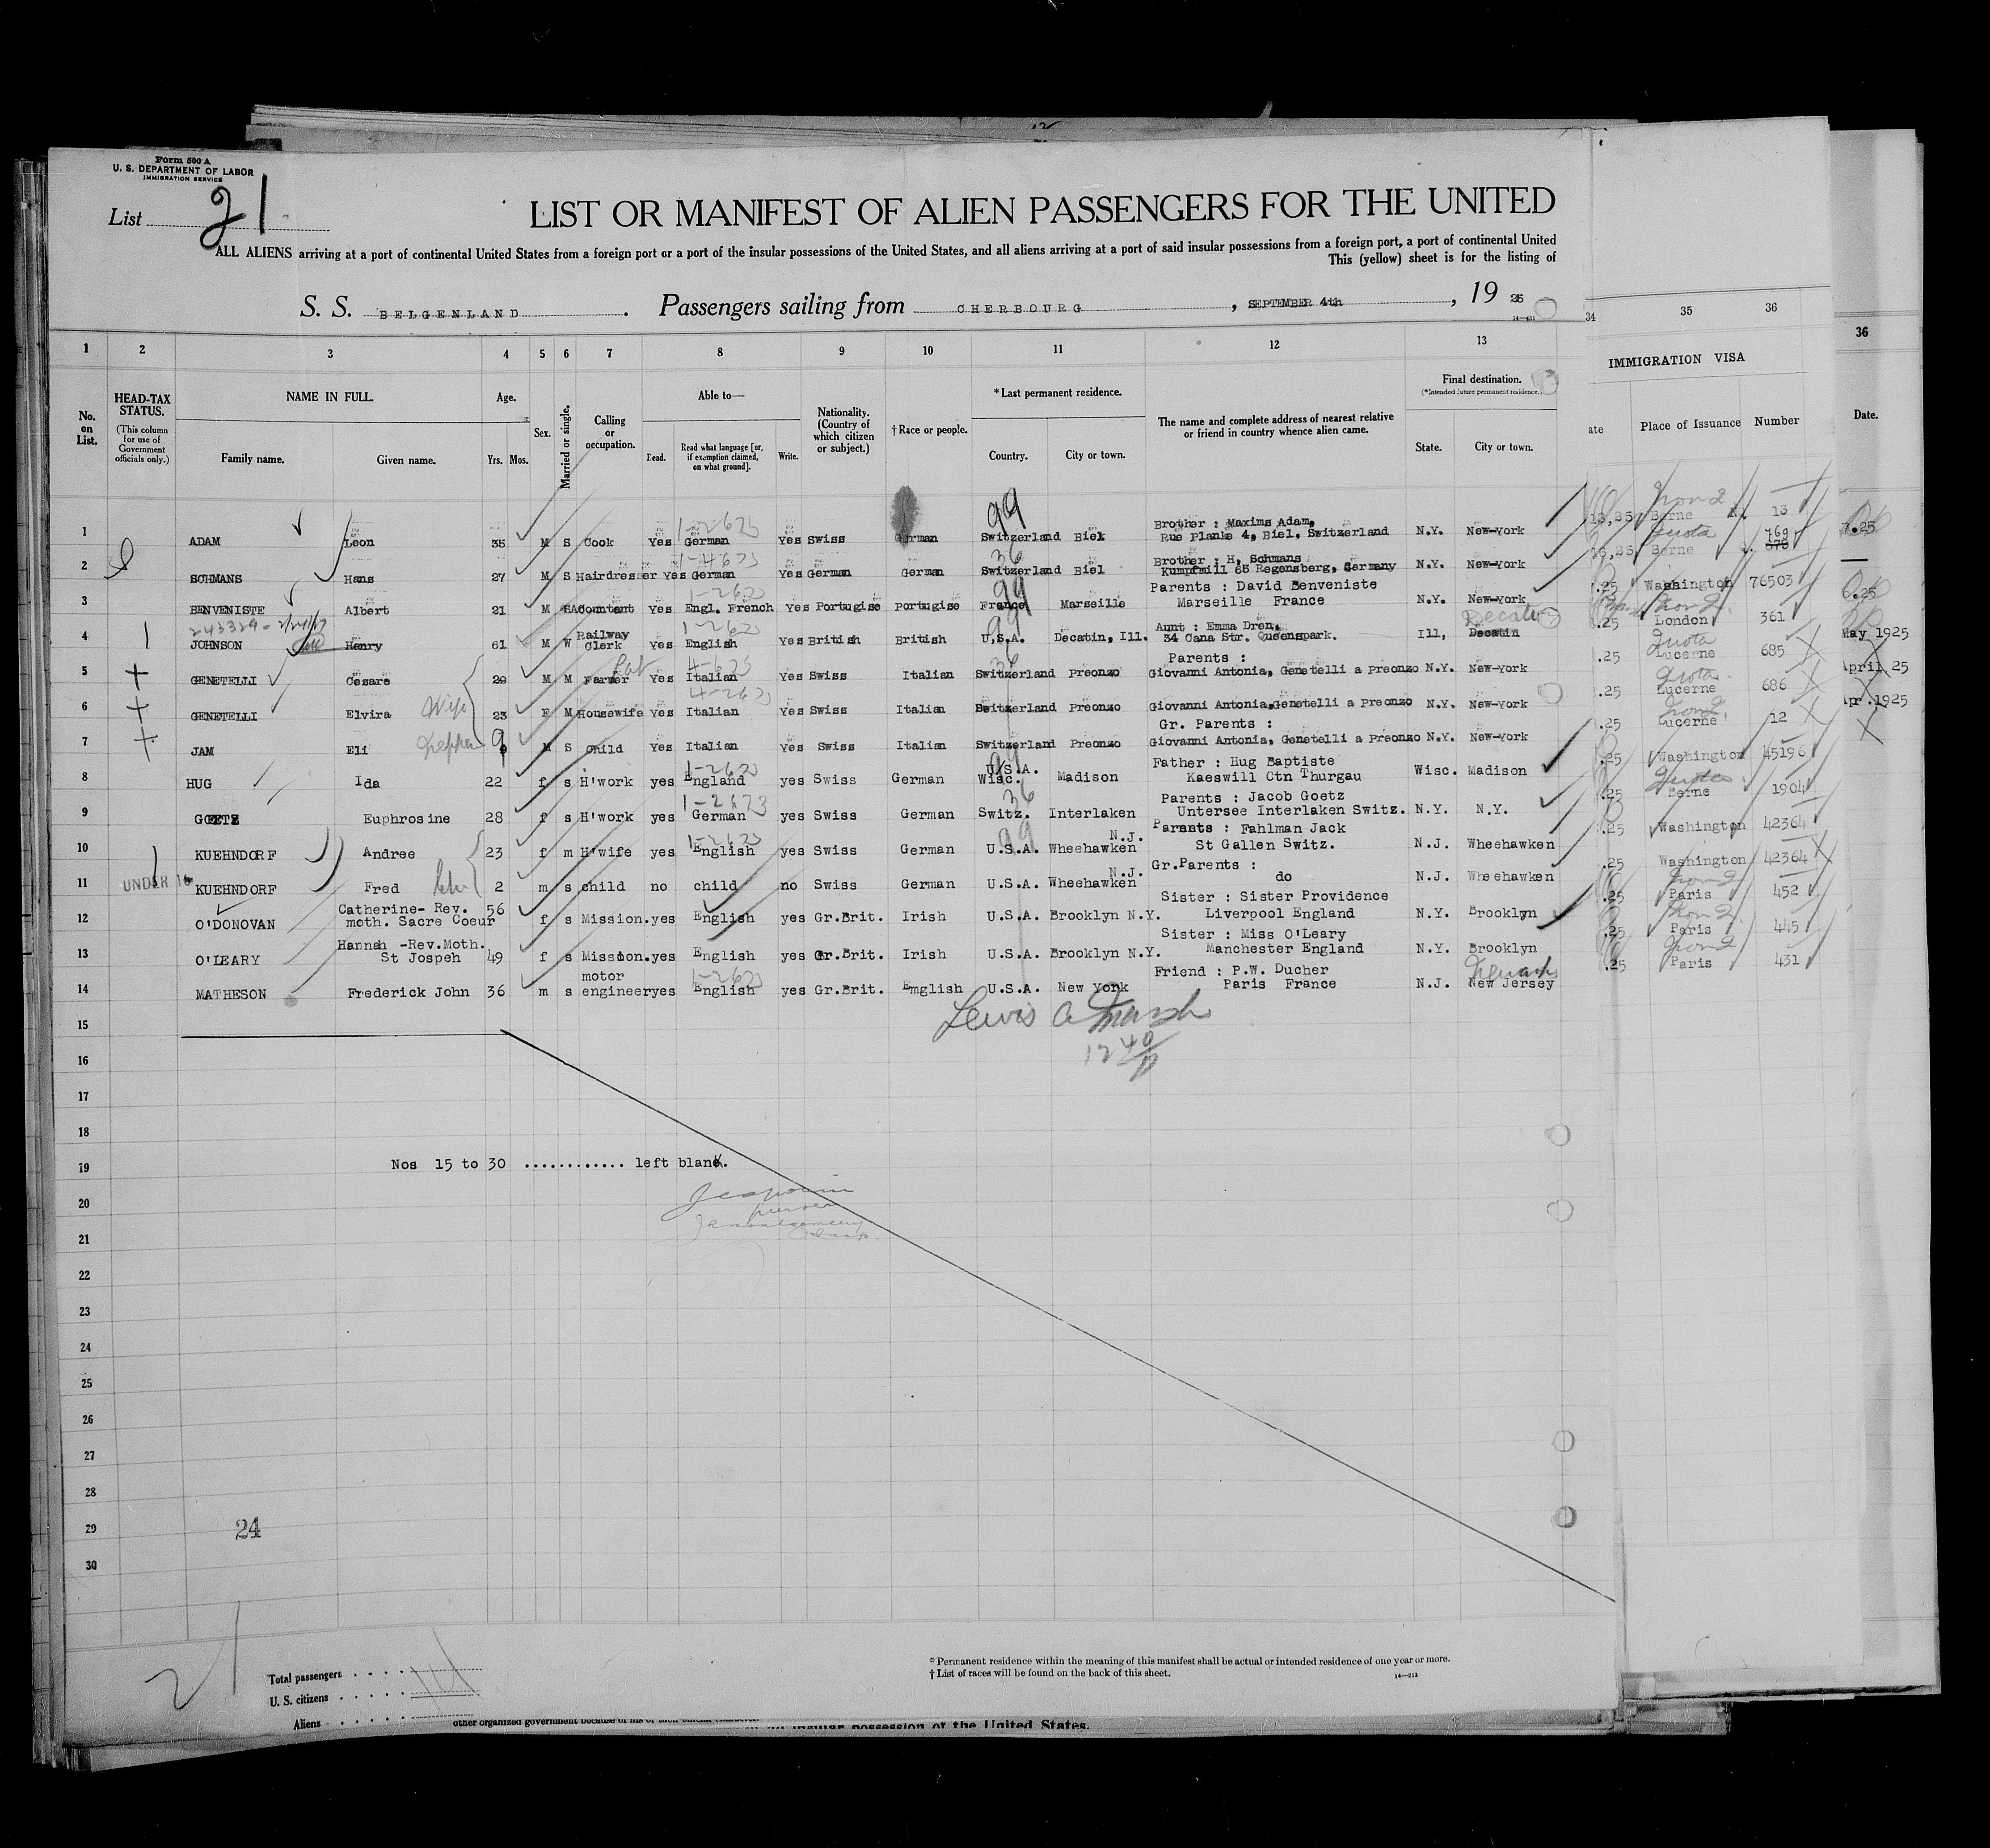 Form 500 A
U. S. DEPARTMENT OF LABOR
IMMIGRATION SERVICE
List 21
LIST OR MANIFEST OF ALIEN PASSENGERS FOR THE UNITED
ALL ALIENS arriving at a port of continental United States from a foreign port or a port of the insular possessions of the United States, and all aliens arriving at a port of said insular possessions from a foreign port, a port of continental United
This (yellow) sheet is for the listing of
S. S. BELGENLAND. Passengers sailing from CHERBOURG, SEPTEMBER 4th, 19 25
1 2 3 4 5 6 7 8 9 10 11 12 13 34 35 36 36
No. on List.
HEAD-TAX STATUS.
(This column for use of Government officials only.)
NAME IN FULL.
Family name. Given name.
Age.
Yrs. Mos.
Sex.
Married or single.
Calling or occupation.
Able to—
Read. Read what language [or, if exemption claimed, on what ground]. Write.
Nationality. (Country of which citizen or subject.)
†Race or people.
*Last permanent residence.
Country. City or town.
The name and complete address of nearest relative or friend in country whence alien came.
Final destination.
(*Intended future permanent residence.)
State. City or town.
IMMIGRATION VISA
ate Place of Issuance Number
Date.
1 ADAM Leon 35 M S Cook Yes German Yes Swiss German Switzerland Biel Brother : Maxims Adam, Rue Planke 4, Biel, Switzerland N.Y. New-York Berne 13
2 SCHMANS Hans 27 M S Hairdresser Yes German Yes German German Switzerland Biel Brother : H. Schmans Kumpfmill 65 Regensberg, Germany N.Y. New-York Berne 769
3 BENVENISTE Albert 21 M S Acountant Yes Engl. French Yes Portugise Portugise France Marseille Parents : David Benveniste Marseille France N.Y. New-York .25 Washington 76503
4 JOHNSON Henry 61 M W Railway Clerk Yes English Yes British British U.S.A. Decatin, Ill. Aunt : Emma Dren, 34 Cana Str. Queenspark. Ill, Decatin .25 London 361 May 1925
5 GENETELLI Cesare 29 M M Farmer Yes Italian Yes Swiss Italian Switzerland Preonzo Parents : Giovanni Antonia, Genetelli a Preonzo N.Y. New-York .25 Lucerne 685 April 25
6 GENETELLI Elvira Wife 23 F M Housewife Yes Italian Yes Swiss Italian Switzerland Preonzo Giovanni Antonia,Genetelli a Preonzo N.Y. New-York .25 Lucerne 686 Apr.1925
7 JAM Eli 9 M S Child Yes Italian Yes Swiss Italian Switzerland Preonzo Gr. Parents : Giovanni Antonia, Genetelli a Preonzo N.Y. New-York .25 Lucerne 12
8 HUG Ida 22 f s H'work yes England yes Swiss German U.S.A. Wisc. Madison Father : Hug Baptiste Kaeswill Ctn Thurgau Wisc. Madison .25 Washington 45196
9 GOETZ Euphrosine 28 f s H'work yes German yes Swiss German Switz. Interlaken Parents : Jacob Goetz Untersee Interlaken Switz. N.Y. N.Y. .25 Berne 1904
10 KUEHNDORF Andree 23 f m H'wife yes English yes Swiss German U.S.A. Wheehawken N.J. Parents : Fahlman Jack St Gallen Switz. N.J. Wheehawken .25 Washington 42364
11 UNDER 16 KUEHNDORF Fred 2 m s child no child no Swiss German U.S.A. Wheehawken N.J. Gr.Parents : do N.J. Wheehawken .25 Washington 42364
12 O'DONOVAN Catherine- Rev. moth. Sacre Coeur 56 f s Mission. yes English yes Gr.Brit. Irish U.S.A. Brooklyn N.Y. Sister : Sister Providence Liverpool England N.Y. Brooklyn .25 Paris 452
13 O'LEARY Hannah -Rev.Moth. St Jospeh 49 f s Mission. yes English yes Gr.Brit. Irish U.S.A. Brooklyn N.Y. Sister : Miss O'Leary Manchester England N.Y. Brooklyn .25 Paris 445
14 MATHESON Frederick John 36 m s motor engineer yes English yes Gr.Brit. Emglish U.S.A. New York Friend : P.W. Ducher Paris France N.J. New Jersey .25 Paris 431
15
16
17
18
19 Nos 15 to 30 ............ left blank.
20
21
22
23
24
25
26
27
28
29 24
30
21
Total passengers
U. S. citizens
Aliens
*Permanent residence within the meaning of this manifest shall be actual or intended residence of one year or more.
†List of races will be found on the back of this sheet.
14—213
insular possession of the United States.